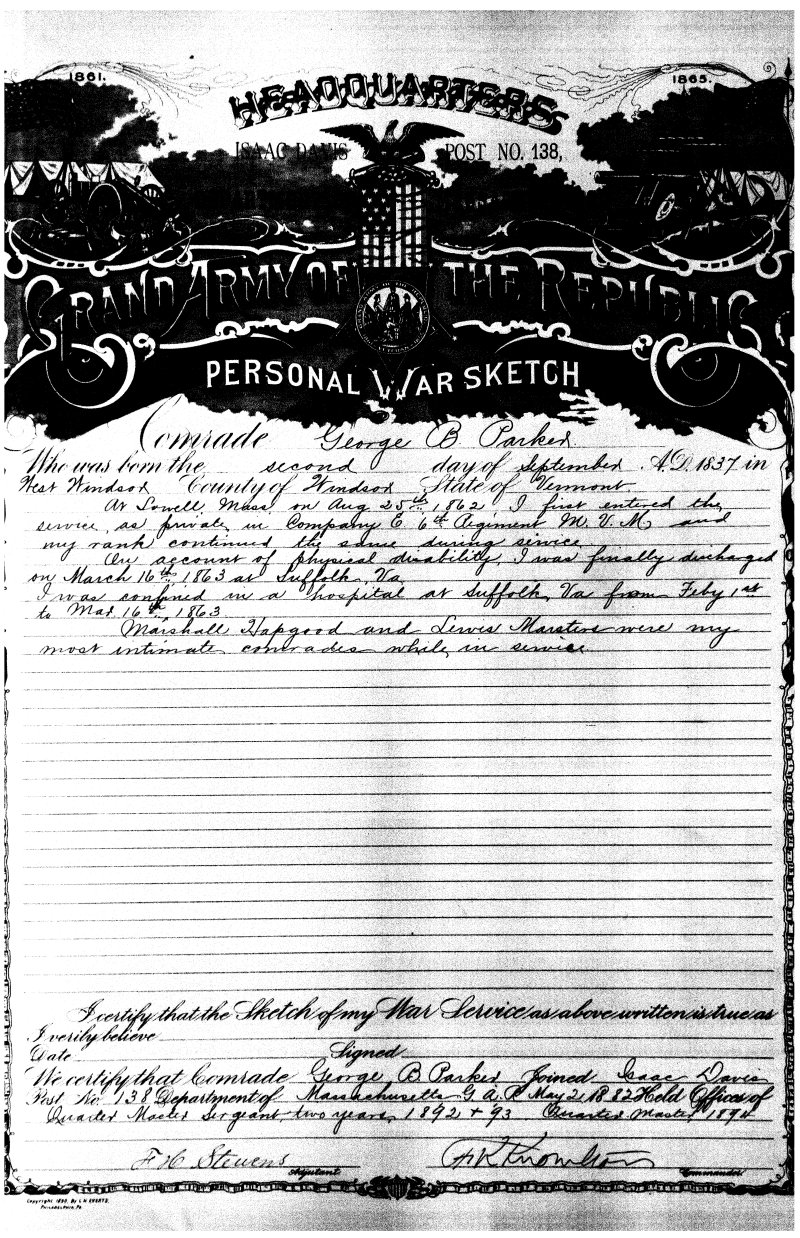 1861.
1865.
HEADQUARTERS
ISAAC DAVIS POST NO. 138,
GRAND ARMY OF THE REPUBLIC
PERSONAL WAR SKETCH
Comrade George B Parker
Who was born the second day of September A.D. 1837 in
West Windsor County of Windsor State of Vermont
At Lowell, Mass, on Aug 25th, 1862, I first entered the
service, as private, in Company E. 6th Regiment M. V. M, and
my rank continued the same during service
On account of physical disability, I was finally discharged
on March 16th, 1863 at Suffolk, Va,
I was confined in a hospital at Suffolk, Va from Feby 1st
to Mar. 16th, 1863
Marshall Hapgood and Lewis Marsters were my
most intimate comrades while in service
I certify that the Sketch of my War Service as above written is true as
I verily believe
Date Signed
We certify that Comrade George B. Parker Joined Isaac Davis
Post No 138 Department of Massachusetts G A R May 2 1882 Held Offices of
Quarter Master Sergeant, two years, 1892 + 93 Quarter Master 1894
F H Stevens
Adjutant Commander
Copyright 1890, By L H EVERTS,
PHILADELPHIA, PA